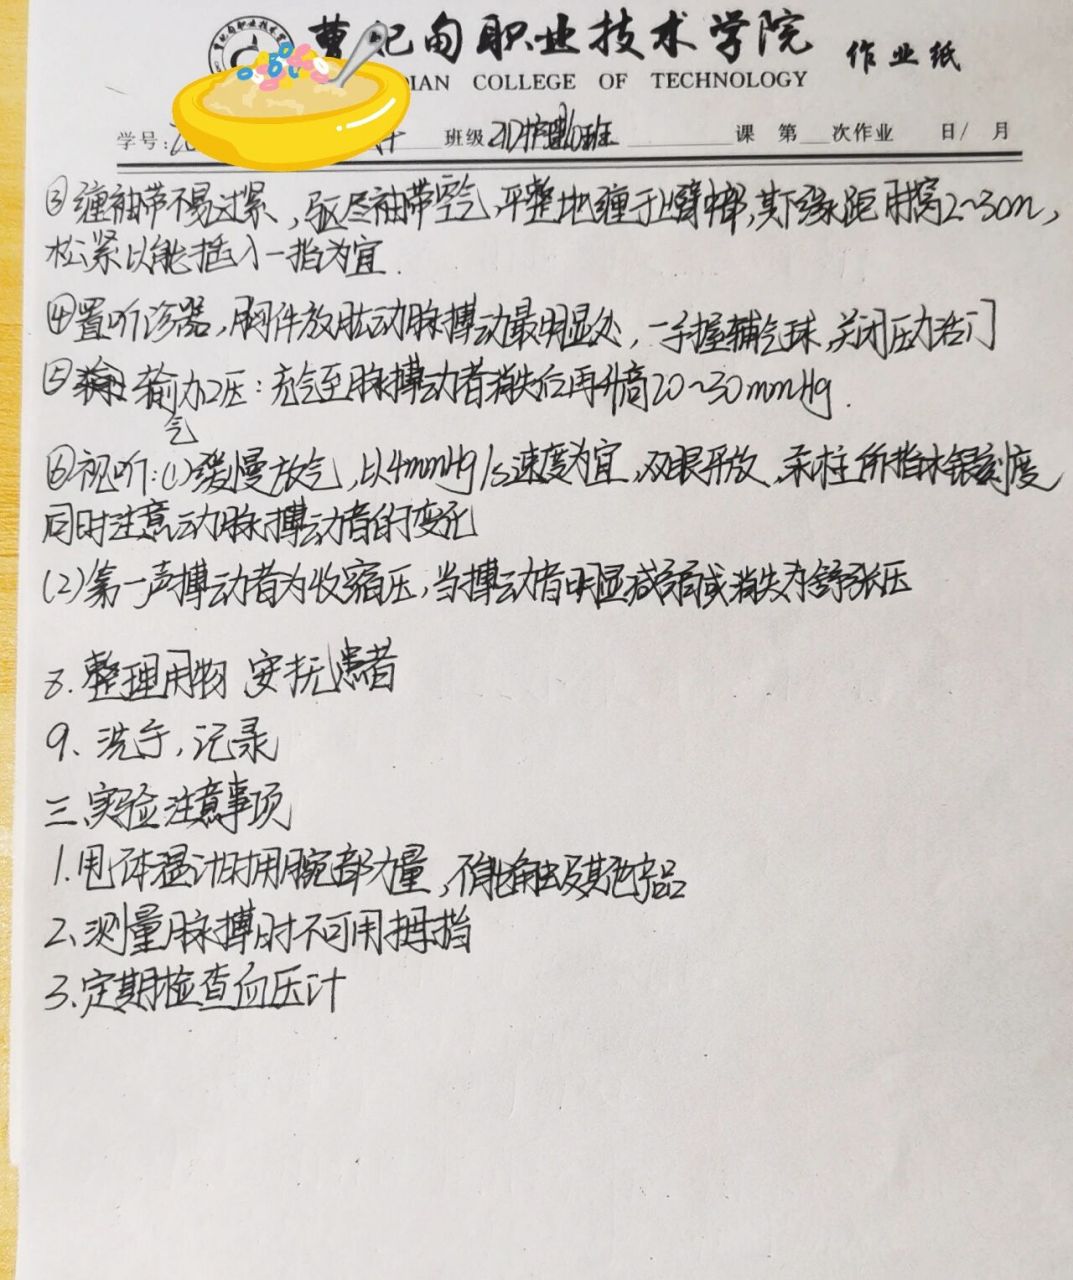 曹妃甸职业技术学院 作业纸
DIAN COLLEGE OF TECHNOLOGY
学号: 班级 21护理10班 课 第 次作业 日/ 月
③缠袖带不易过紧,驱尽袖带空气,平整地缠于上臂中部,其下缘距肘窝2~3cm,
松紧以能插入一指为宜.
④置听诊器,胸件放肱动脉搏动最明显处,一手握辅气球,关闭压力活门
⑤输加压:充气至脉搏动音消失后再升高20~30mmHg.
气
⑥视听:(1)缓慢放气,以4mmHg/s速度为宜,双眼平放,汞柱所指水银刻度
同时注意动脉搏动音的变化
(2)第一声搏动音为收缩压,当搏动音明显减弱或消失为舒张压
8.整理用物 安抚患者
9、洗手,记录
三、实验注意事项
1.甩体温计时用腕部力量,不能触及其他产品
2、测量脉搏时不可用拇指
3.定期检查血压计